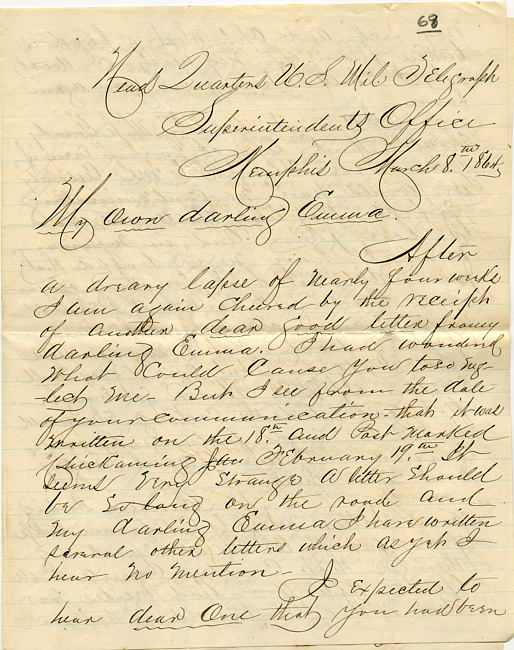 68
Head Quarters U. S. Mil Telegraph
Superintendents Office
Memphis March 8th 1864
My own darling Emma.
After
a dreary lapse of nearly four weeks
I am again cheered by the receipt
of another dear good letter from my
darling Emma. I had wondered
what could cause you to so neg-
-lect me - But I see from the date
of your communication - that it was
written on the 18th and Post Marked
February 19th It
seems very strange a letter should
be so long on the road and
my darling Emma I have written
several other letters which as yet I
hear no mention -
I expected to
hear dear One that you had been